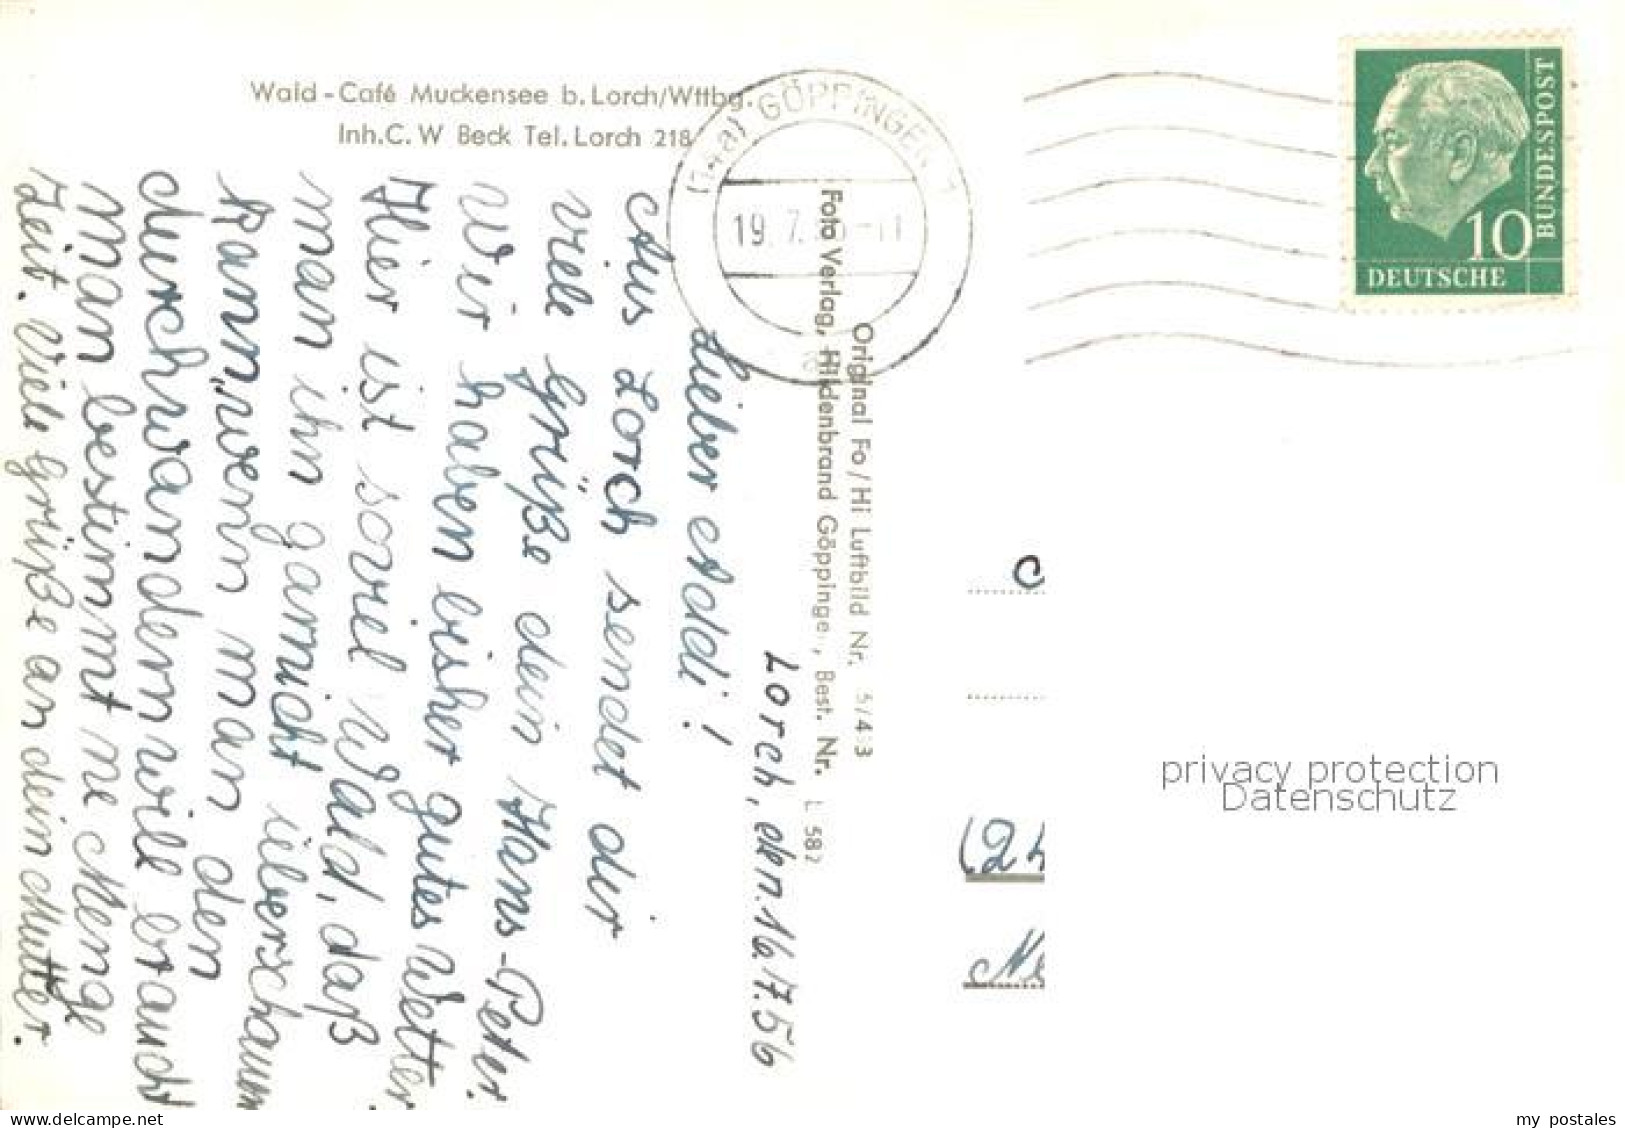 Wald-Café Muckensee b. Lorch/Wttbg.
Inh. C. W Beck Tel. Lorch 218
(14a) GÖPPINGEN 1
19.7. -11
10
DEUTSCHE
BUNDESPOST
Original Fo/Hi Luftbild Nr.
Foto Verlag, Hildenbrand Göppingen, Best. Nr. L 582
Lorch, den. 16.7.56
Lieber Addi!
Aus Lorch sendet dir
viele Grüße dein Hans-Peter.
Wir haben bisher gutes Wetter.
Hier ist soviel Wald, daß
man ihn garnicht überschauen
kann, wenn man den
durchwandern will braucht
man bestimmt ne Menge
Zeit. Viele Grüße an dein Mutter.
(24
privacy protection
Datenschutz
www.delcampe.net
my postales